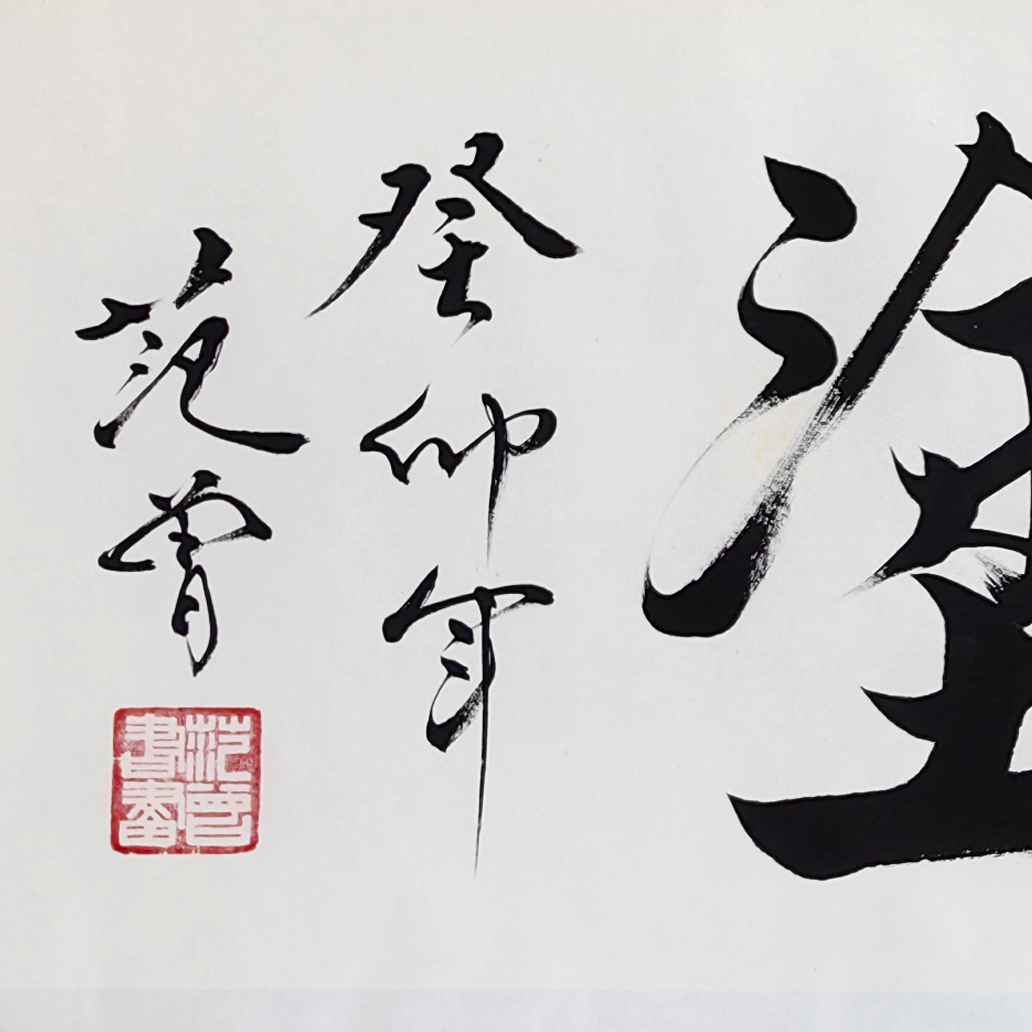 癸卯年
范曾
范曾
書畫